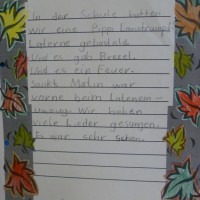 In der Schule hatten
wir eine Pippi Langstrumpf
Laterne gebastelt.
Und es gab Brezel.
Und es ein Feuer.
Sankt Matin war
vorne beim Laternen-
Umzug. Wir haben
viele Lieder gesungen.
Es war sehr schön.